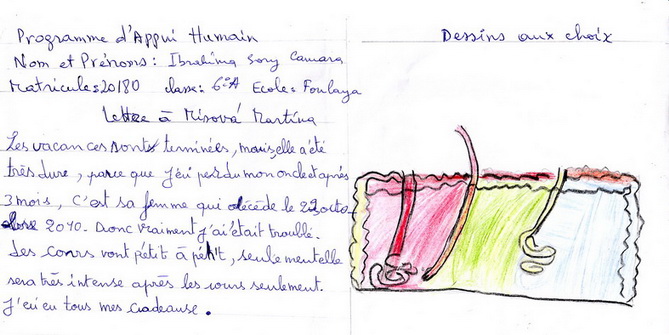 Programme d'Appui Humain
Dessins aux choix
Nom et Prénoms : Ibrahima Sory Camara
Matricule : 20180 classe : 6e A Ecole : Foulaya
Lettre à Misová Martina
Les vacances sont terminées, mais, elle a été
très dure, parce que j'ai perdu mon oncle et après
3 mois, c'est sa femme qui décède le 23 octo-
bre 2010. Donc vraiment j'ai était troublé.
Les cours vont pétit à pétit, seule mentelle
sera très intense après les cours seulement.
J'ai eu tous mes cadeause.